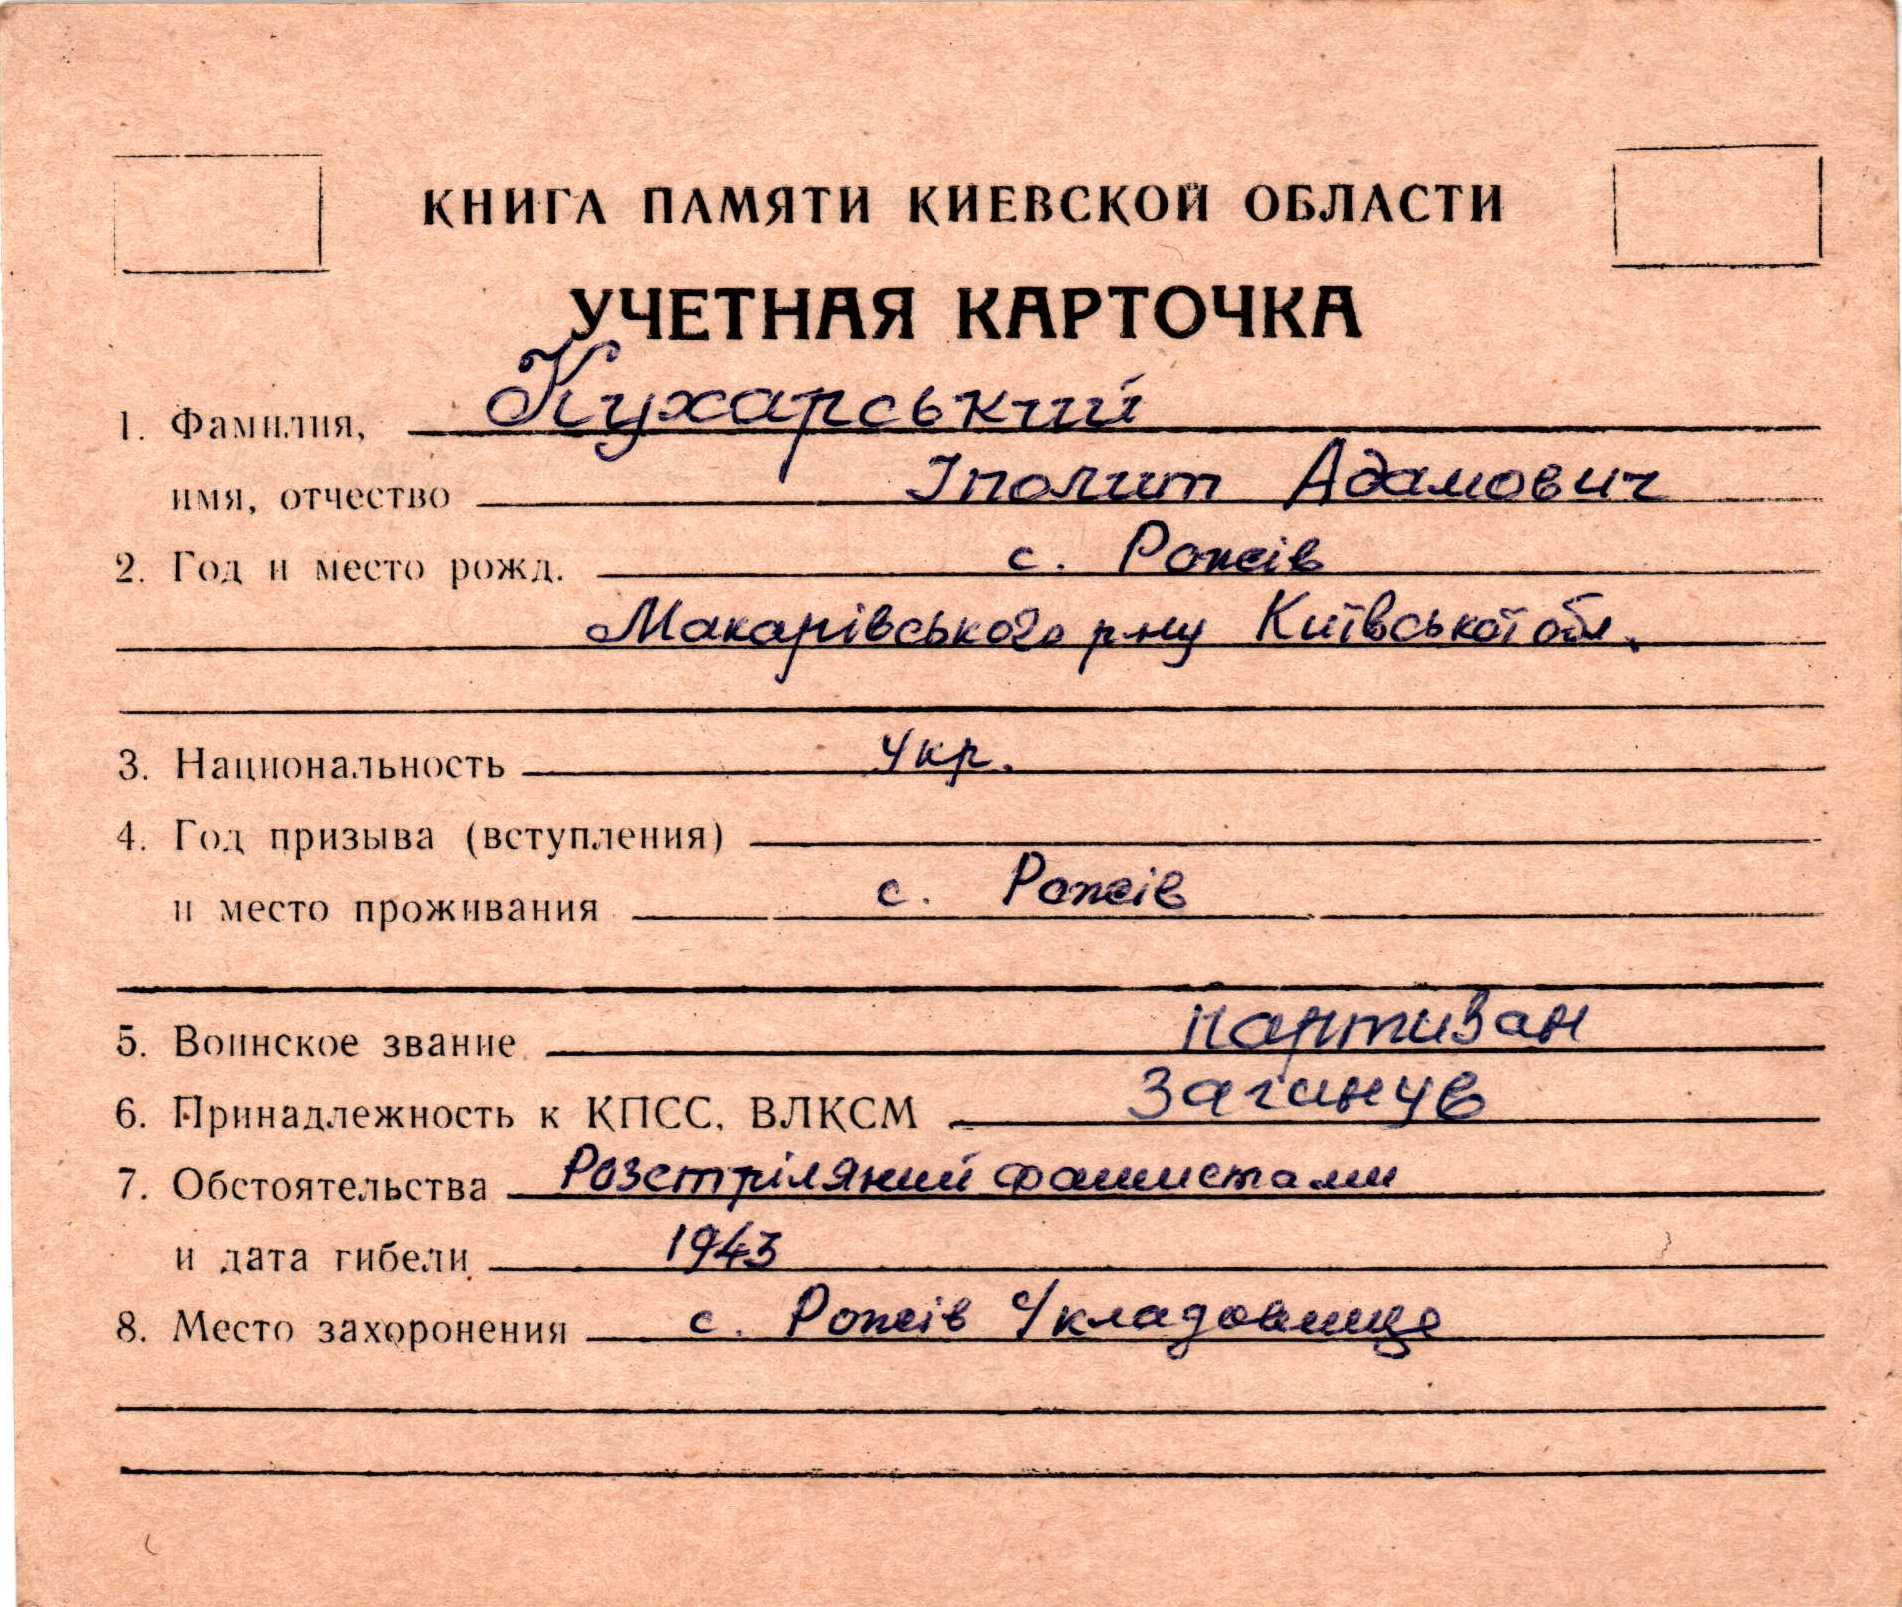 КНИГА ПАМЯТИ КИЕВСКОЙ ОБЛАСТИ
УЧЕТНАЯ КАРТОЧКА
1. Фамилия, Кухарський
имя, отчество Іполит Адамович
2. Год и место рожд. с. Рожів
Макарівського р-ну Київської обл.
3. Национальность Укр.
4. Год призыва (вступления)
и место проживания с. Рожів
5. Воинское звание партизан
6. Принадлежность к КПСС, ВЛКСМ Загинув
7. Обстоятельства Розстріляний фашистами
и дата гибели 1943
8. Место захоронения с. Рожів кладовище